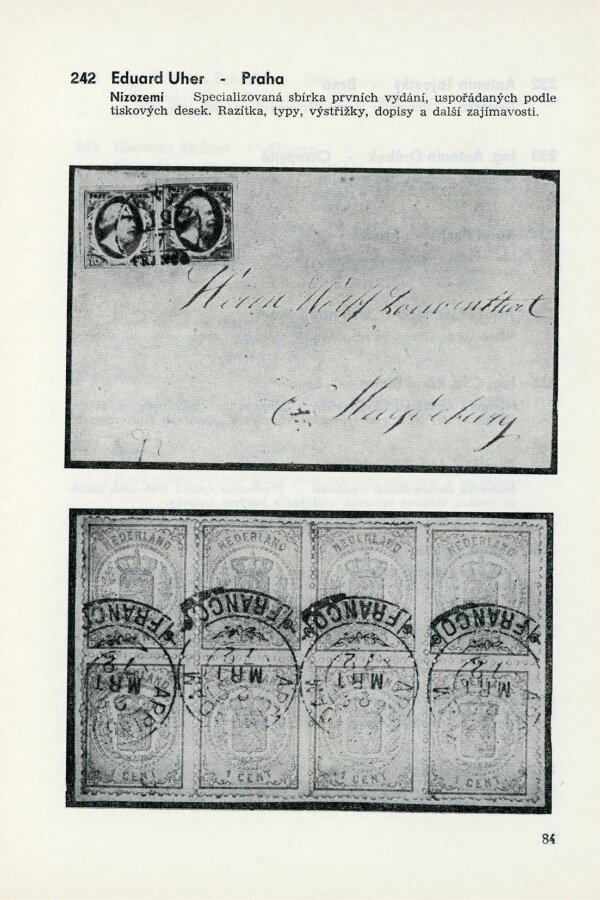 242 Eduard Uher - Praha
Nizozemí Specializovaná sbírka prvních vydání, uspořádaných podle
tiskových desek. Razítka, typy, výstřižky, dopisy a další zajímavosti.
FRANCO
Herrn Wolff Loewenthal
Magdeburg
NEDERLAND NEDERLAND NEDERLAND NEDERLAND
FRANCO FRANCO FRANCO FRANCO
1 CENT 1 CENT 1 CENT 1 CENT
84